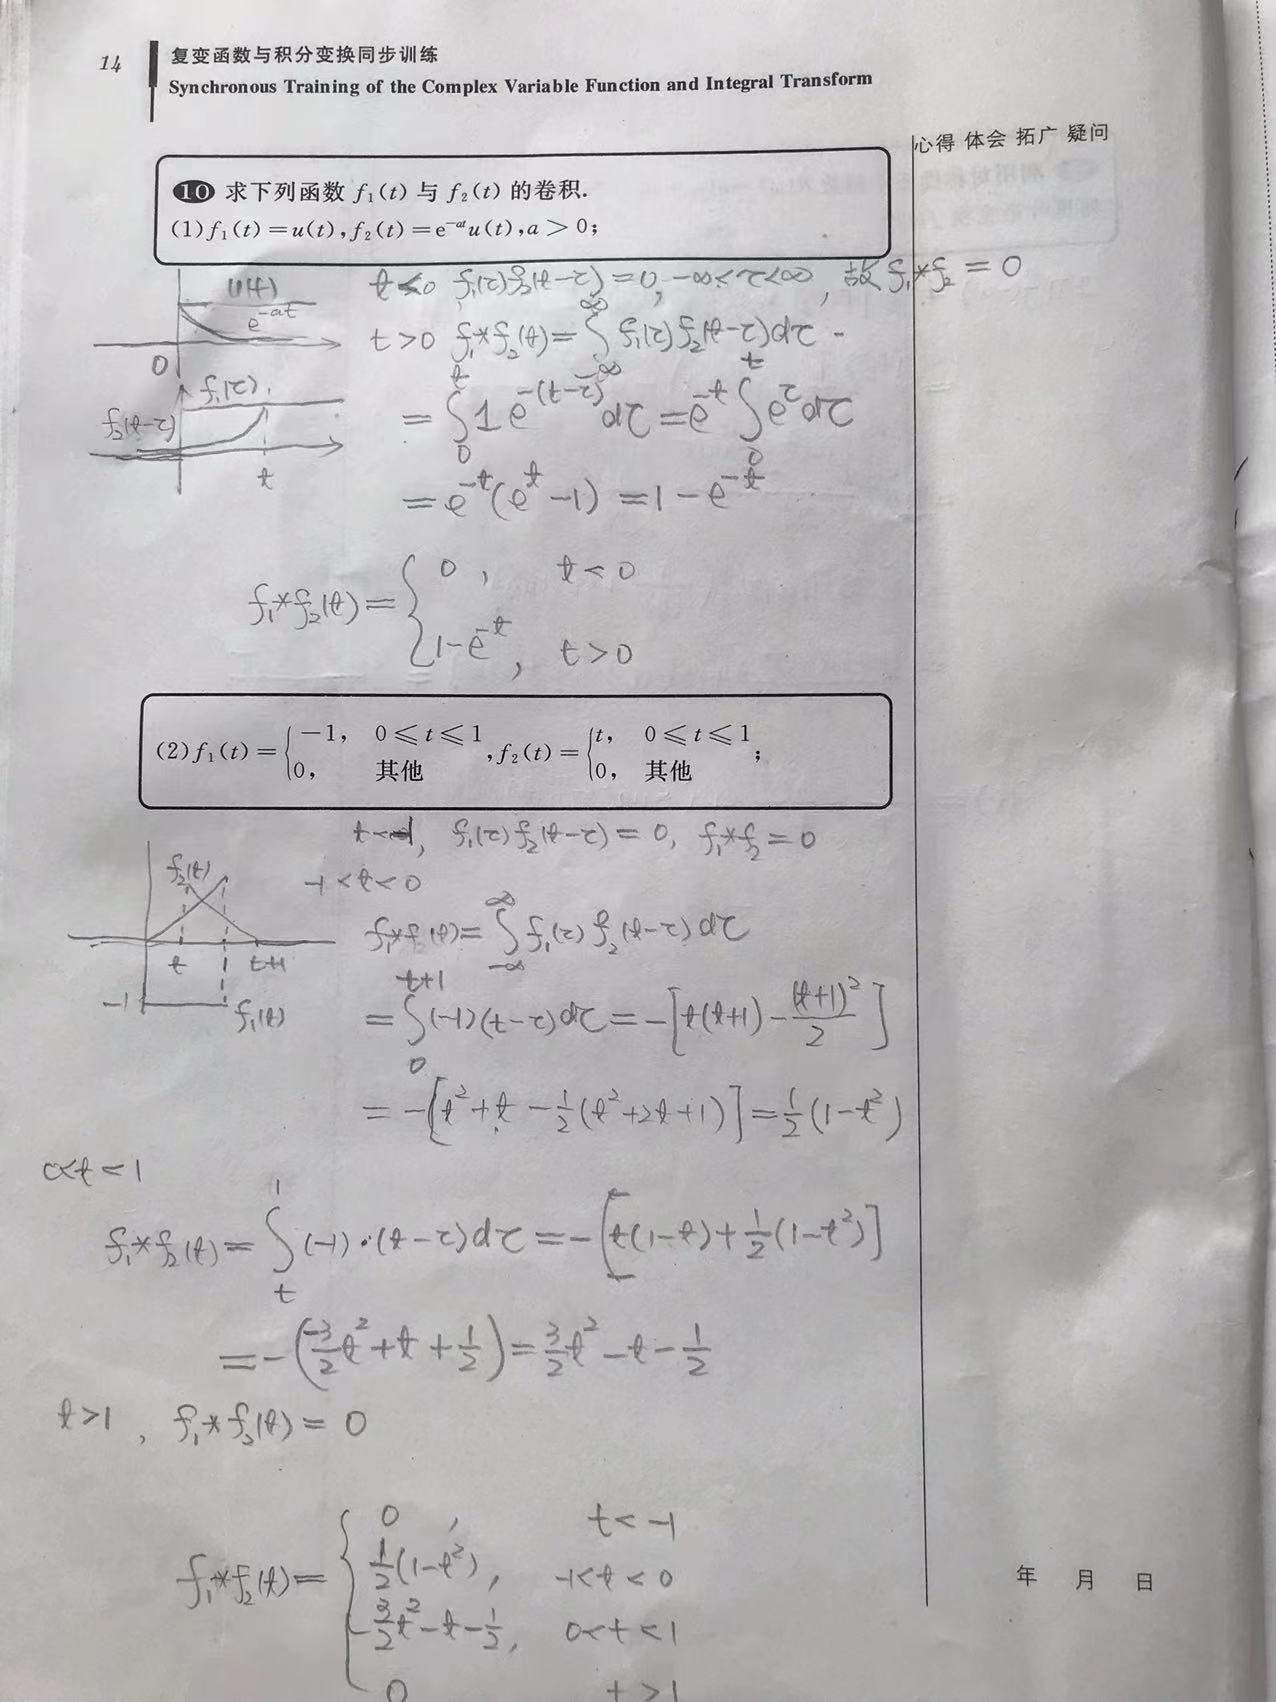 14
复变函数与积分变换同步训练
Synchronous Training of the Complex Variable Function and Integral Transform
心得 体会 拓广 疑问
10 求下列函数 f₁(t) 与 f₂(t) 的卷积.
(1) f₁(t) = u(t), f₂(t) = e⁻ᵃᵗu(t), a > 0;
u(t)
e⁻ᵃᵗ
0
t<0 f₁(τ)f₂(t-τ)=0, -∞<τ<∞, 故f₁*f₂=0
t>0 f₁*f₂(t)=∫_{-∞}^{∞} f₁(τ)f₂(t-τ)dτ
f₁(τ)
f₂(t-τ)
t
=∫₀ᵗ 1 e^{-(t-τ)}dτ=e⁻ᵗ∫₀ᵗ e^τ dτ
=e⁻ᵗ(eᵗ-1)=1-e⁻ᵗ
f₁*f₂(t)={ 0, t<0
1-e⁻ᵗ, t>0
(2) f₁(t) = { -1, 0≤t≤1
0, 其他
, f₂(t) = { t, 0≤t≤1
0, 其他
;
f₁(τ)f₂(t-τ)=0, f₁*f₂=0
f₂(t)
t
1
t+1
-1
f₁(t)
-1<t<0
f₁*f₂(t)=∫_{-∞}^{∞} f₁(τ)f₂(t-τ)dτ
=∫₀^{t+1}(-1)(t-τ)dτ=-[t(t+1)-(t+1)²/2]
=-[t²+t-1/2(t²+2t+1)]=1/2(1-t²)
0<t<1
f₁*f₂(t)=∫ₜ¹(-1)·(t-τ)dτ=-[t(1-t)+1/2(1-t²)]
=-(-3/2t²+t+1/2)=3/2t²-t-1/2
t>1, f₁*f₂(t)=0
f₁*f₂(t)={ 0, t<-1
1/2(1-t²), -1<t<0
3/2t²-t-1/2, 0<t<1
0 t>1
年 月 日